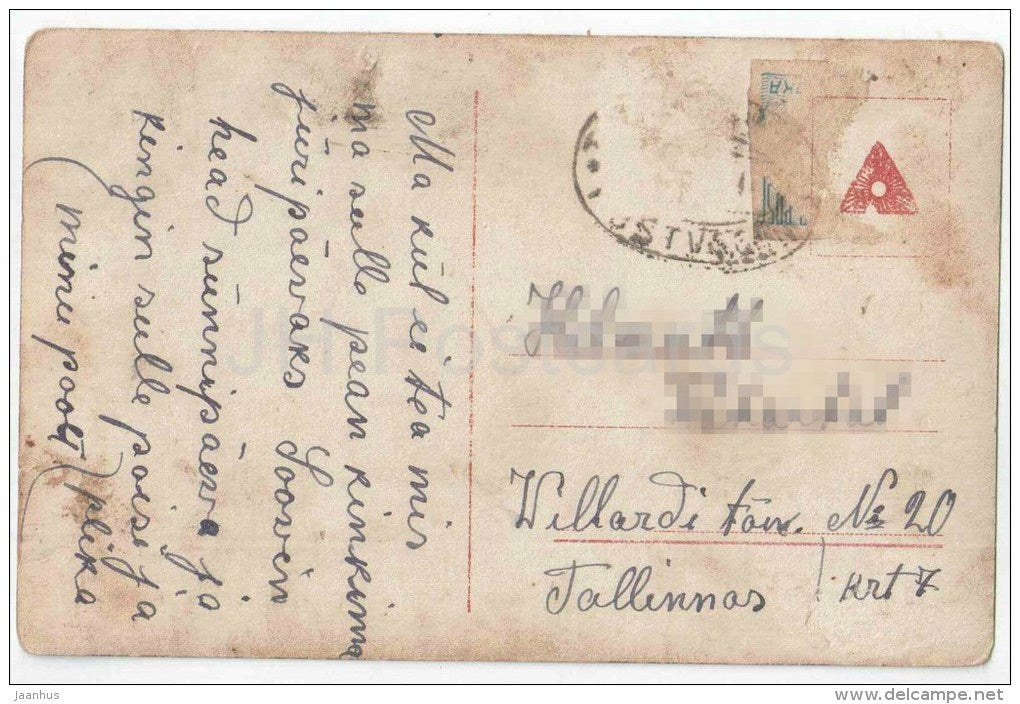 Ma kül ei tea mis
ma sulle pean kinkima
jüripäevaks Soovin
head sünnipäeva ja
kingin sulle poisi ja
plika
minu poolt
Willardi tän. № 20
Tallinnas krt 7
JH Postcards
jaanhus
www.delcampe.net